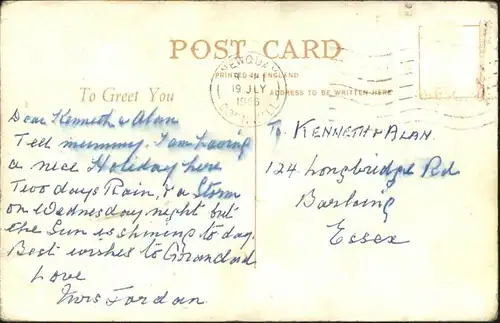 POST CARD
NEWQUAY
19 JLY
1966
CORNWALL
PRINTED IN ENGLAND
ADDRESS TO BE WRITTEN HERE
To Greet You
Dear Kenneth & Alan
Tell mummy. I am having
a nice Holiday here
Two days Rain, & a Storm
on Wednesday night but
the Sun is shining to day.
Best wishes to Grandad
Love
Mrs Jordan
To KENNETH & ALAN
124 Longbridge Rd
Barking
Essex